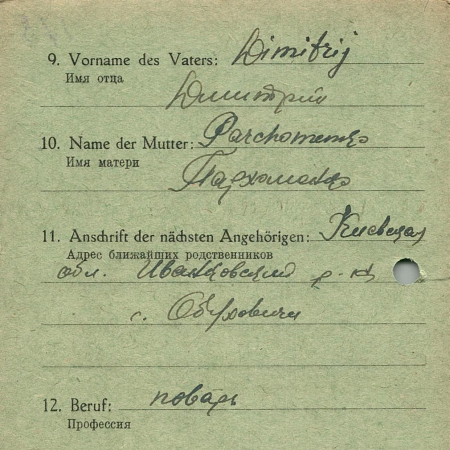 9. Vorname des Vaters: Dimitrij
Имя отца
Димитрий
10. Name der Mutter: Parchomenko
Имя матери
Пархоменко
11. Anschrift der nächsten Angehörigen: Киевская
Адрес ближайших родственников
обл. Иванковский р-н
с. Обуховичи
12. Beruf: повар
Профессия